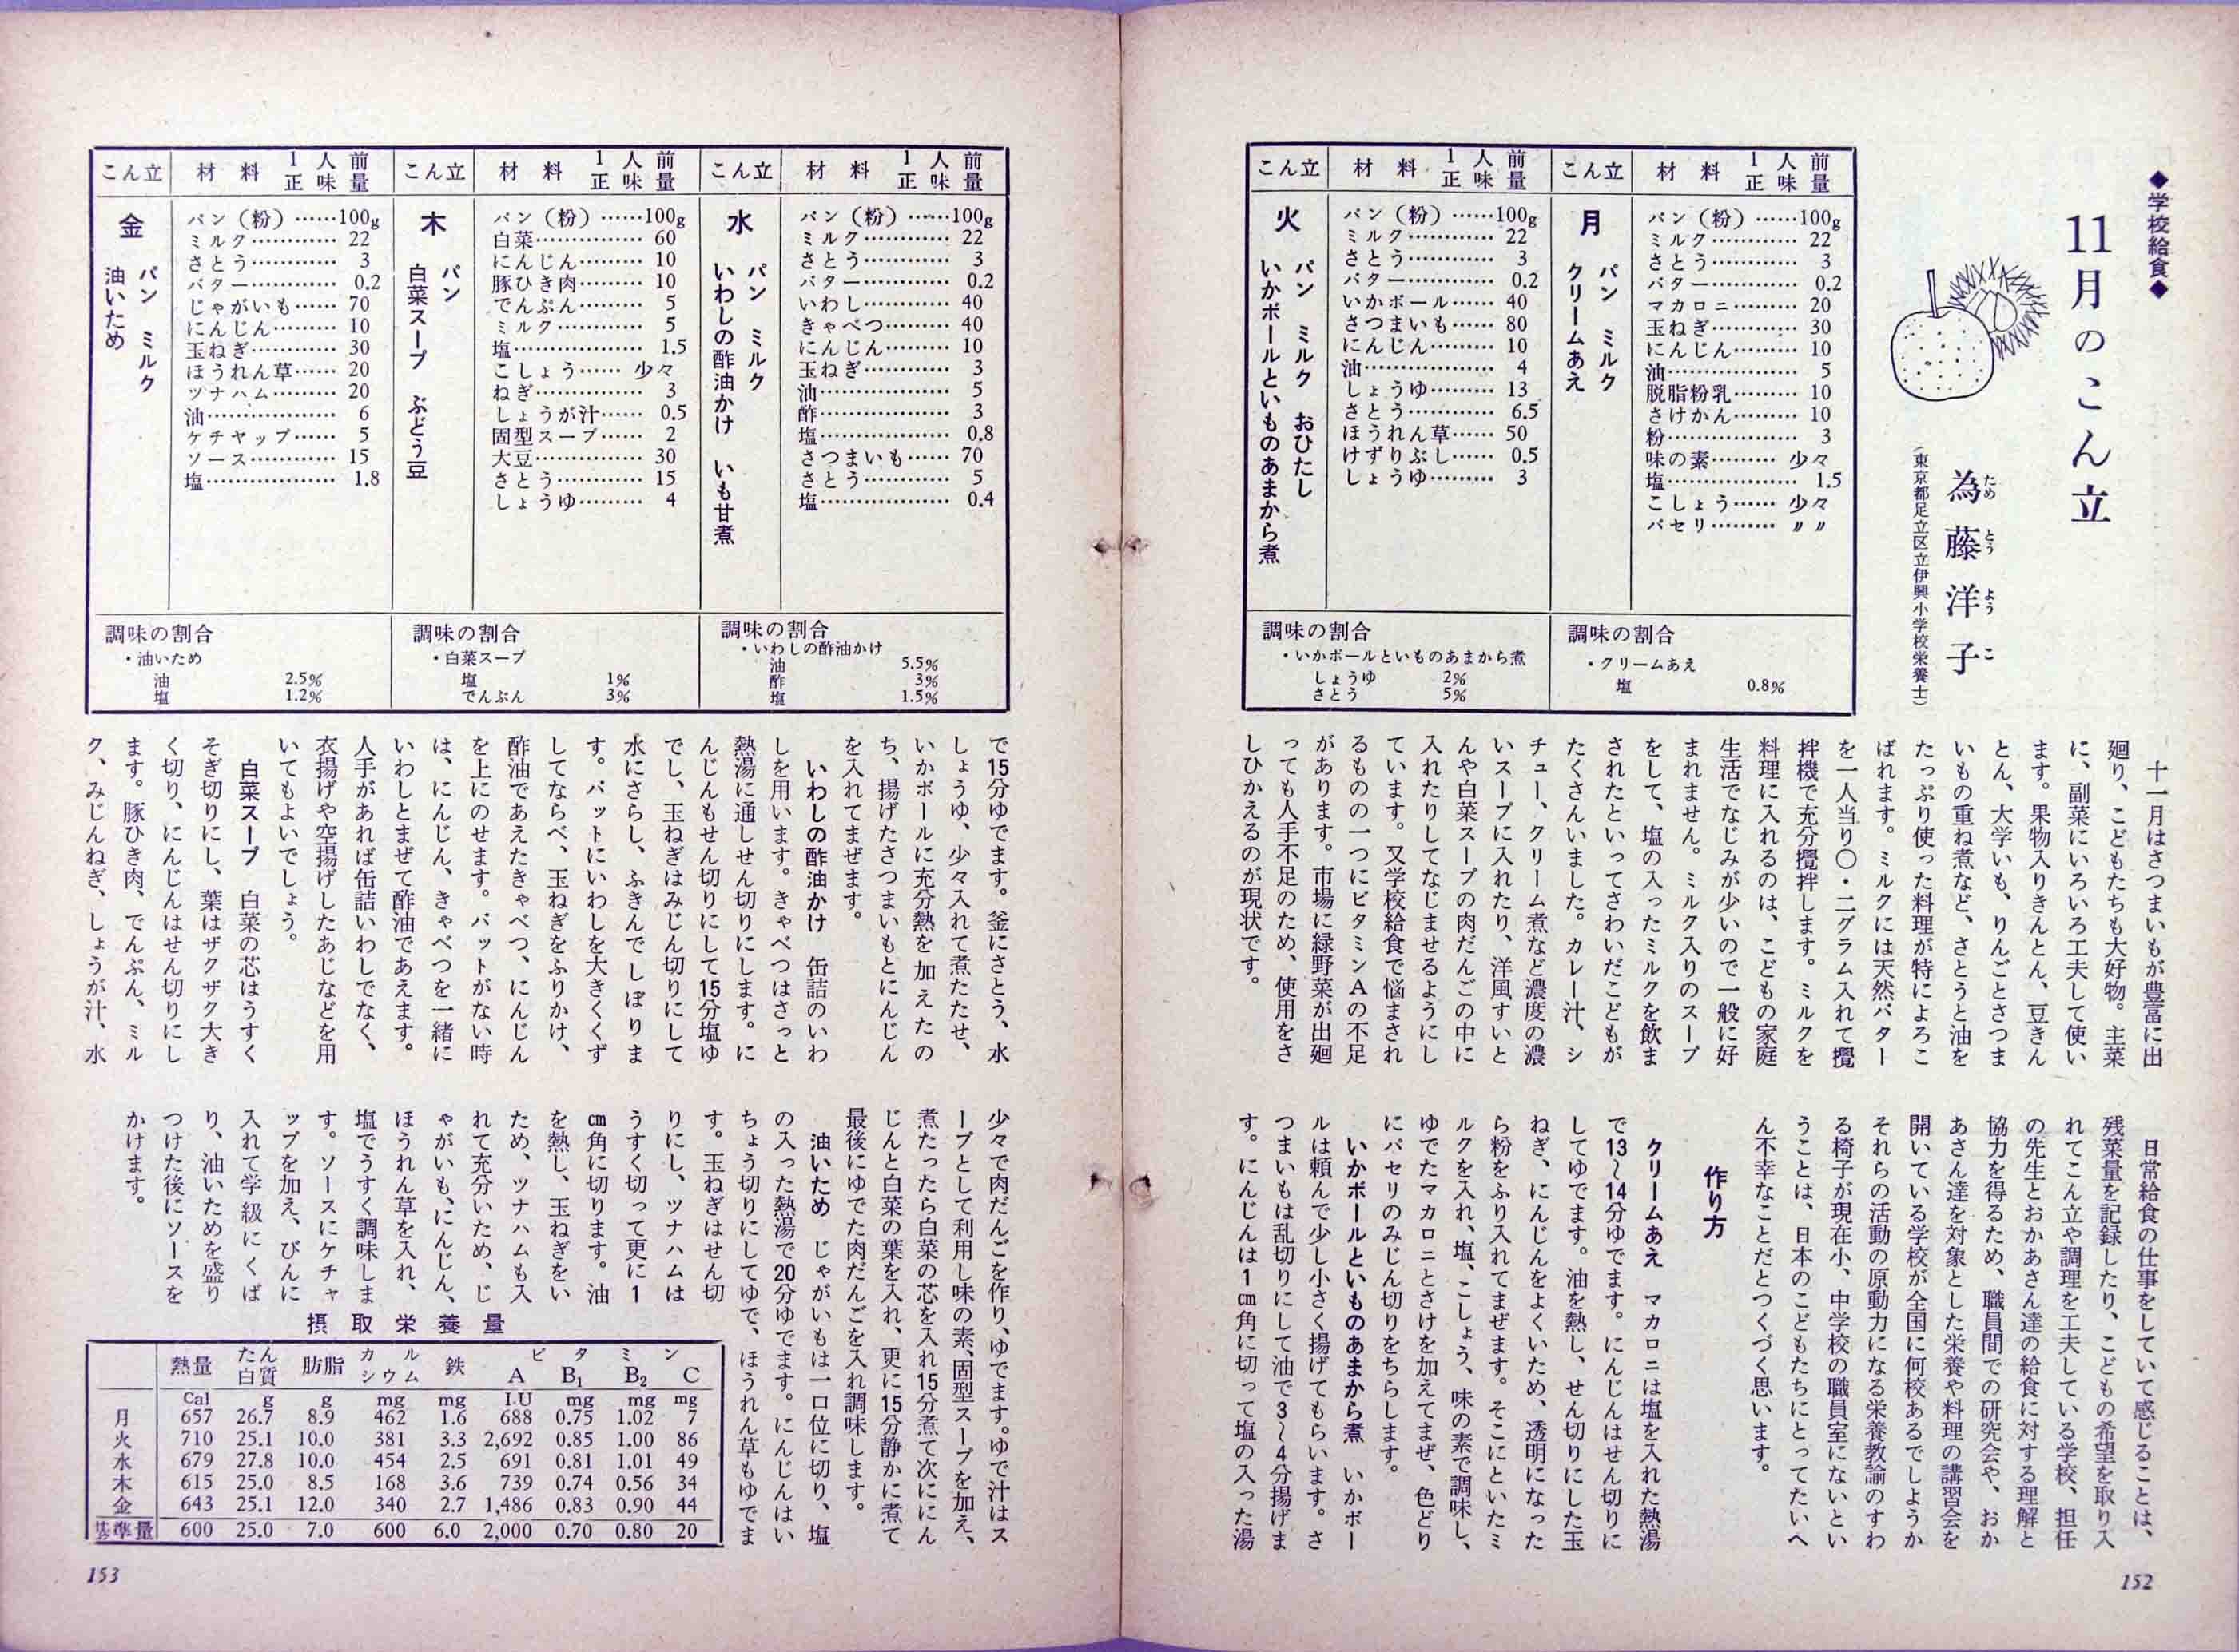 ◆学校給食◆
11月のこん立
為藤洋子
ためとうようこ
（東京都足立区立伊興小学校栄養士）
こん立 材料 1人前正味量
月
パン ミルク
クリームあえ
パン（粉）……100g
ミルク………… 22
さとう………… 3
バター………… 0.2
マカロニ……… 20
玉ねぎ………… 30
にんじん……… 10
油……………… 5
脱脂粉乳……… 10
さけかん……… 10
粉……………… 3
味の素……… 少々
塩……………… 1.5
こしょう…… 少々
パセリ……… 〃〃
調味の割合
・クリームあえ
塩 0.8%
こん立 材料 1人前正味量
火
パン ミルク おひたし
いかボールといものあまから煮
パン（粉）……100g
ミルク………… 22
さとう………… 3
バター………… 0.2
いかボール…… 40
さつまいも…… 80
にんじん……… 10
油……………… 4
しょうゆ……… 13
さとう………… 6.5
ほうれん草…… 50
けずりぶし…… 0.5
しょうゆ……… 3
調味の割合
・いかボールといものあまから煮
しょうゆ 2%
さとう 5%
十一月はさつまいもが豊富に出
廻り、こどもたちも大好物。主菜
に、副菜にいろいろ工夫して使い
ます。果物入りきんとん、豆きん
とん、大学いも、りんごとさつま
いもの重ね煮など、さとうと油を
たっぷり使った料理が特によろこ
ばれます。ミルクには天然バター
を一人当り〇・二グラム入れて攪
拌機で充分攪拌します。ミルクを
料理に入れるのは、こどもの家庭
生活でなじみが少いので一般に好
まれません。ミルク入りのスープ
をして、塩の入ったミルクを飲ま
されたといってさわいだこどもが
たくさんいました。カレー汁、シ
チュー、クリーム煮など濃度の濃
いスープに入れたり、洋風すいと
んや白菜スープの肉だんごの中に
入れたりしてなじませるようにし
ています。又学校給食で悩まされ
るものの一つにビタミンAの不足
があります。市場に緑野菜が出廻
っても人手不足のため、使用をさ
しひかえるのが現状です。
日常給食の仕事をしていて感じることは、
残菜量を記録したり、こどもの希望を取り入
れてこん立や調理を工夫している学校、担任
の先生とおかあさん達の給食に対する理解と
協力を得るため、職員間での研究会や、おか
あさん達を対象とした栄養や料理の講習会を
開いている学校が全国に何校あるでしょうか
それらの活動の原動力になる栄養教諭のすわ
る椅子が現在小、中学校の職員室にないとい
うことは、日本のこどもたちにとってたいへ
ん不幸なことだとつくづく思います。
作り方
クリームあえ マカロニは塩を入れた熱湯
で13〜14分ゆでます。にんじんはせん切りに
してゆでます。油を熱し、せん切りにした玉
ねぎ、にんじんをよくいため、透明になった
ら粉をふり入れてまぜます。そこにといたミ
ルクを入れ、塩、こしょう、味の素で調味し、
ゆでたマカロニとさけを加えてまぜ、色どり
にパセリのみじん切りをちらします。
いかボールといものあまから煮 いかボー
ルは頼んで少し小さく揚げてもらいます。さ
つまいもは乱切りにして油で3〜4分揚げま
す。にんじんは1cm角に切って塩の入った湯
152
こん立 材料 1人前正味量
水
パン ミルク
いわしの酢油かけ いも甘煮
パン（粉）……100g
ミルク………… 22
さとう………… 3
バター………… 0.2
いわし………… 40
きゃべつ……… 40
にんじん……… 10
玉ねぎ………… 3
油……………… 5
酢……………… 3
塩……………… 0.8
さつまいも…… 70
さとう………… 5
塩……………… 0.4
調味の割合
・いわしの酢油かけ
油 5.5%
酢 3%
塩 1.5%
こん立 材料 1人前正味量
木
パン
白菜スープ ぶどう豆
パン（粉）……100g
白菜…………… 60
にんじん……… 10
豚ひき肉……… 10
でんぷん……… 5
ミルク………… 5
塩……………… 1.5
こしょう…… 少々
ねぎ…………… 3
しょうが汁…… 0.5
固型スープ…… 2
大豆…………… 30
さとう………… 15
しょうゆ……… 4
調味の割合
・白菜スープ
塩 1%
でんぷん 3%
こん立 材料 1人前正味量
金
パン ミルク
油いため
パン（粉）……100g
ミルク………… 22
さとう………… 3
バター………… 0.2
じゃがいも…… 70
にんじん……… 10
玉ねぎ………… 30
ほうれん草…… 20
ツナハム……… 20
油……………… 6
ケチャップ…… 5
ソース………… 15
塩……………… 1.8
調味の割合
・油いため
油 2.5%
塩 1.2%
で15分ゆでます。釜にさとう、水
しょうゆ、少々入れて煮たたせ、
いかボールに充分熱を加えたの
ち、揚げたさつまいもとにんじん
を入れてまぜます。
いわしの酢油かけ 缶詰のいわ
しを用います。きゃべつはさっと
熱湯に通しせん切りにします。に
んじんもせん切りにして15分塩ゆ
でし、玉ねぎはみじん切りにして
水にさらし、ふきんでしぼりま
す。バットにいわしを大きくくず
してならべ、玉ねぎをふりかけ、
酢油であえたきゃべつ、にんじん
を上にのせます。バットがない時
は、にんじん、きゃべつを一緒に
いわしとまぜて酢油であえます。
人手があれば缶詰いわしでなく、
衣揚げや空揚げしたあじなどを用
いてもよいでしょう。
白菜スープ 白菜の芯はうすく
そぎ切りにし、葉はザクザク大き
く切り、にんじんはせん切りにし
ます。豚ひき肉、でんぷん、ミル
ク、みじんねぎ、しょうが汁、水
少々で肉だんごを作り、ゆでます。ゆで汁はス
ープとして利用し味の素、固型スープを加え、
煮たったら白菜の芯を入れ15分煮て次ににん
じんと白菜の葉を入れ、更に15分静かに煮て
最後にゆでた肉だんごを入れ調味します。
油いため じゃがいもは一口位に切り、塩
の入った熱湯で20分ゆでます。にんじんはい
ちょう切りにしてゆで、ほうれん草もゆでま
す。玉ねぎはせん切
りにし、ツナハムは
うすく切って更に1
cm角に切ります。油
を熱し、玉ねぎをい
ため、ツナハムも入
れて充分いため、じ
ゃがいも、にんじん、
ほうれん草を入れ、
塩でうすく調味しま
す。ソースにケチャ
ップを加え、びんに
入れて学級にくば
り、油いためを盛り
つけた後にソースを
かけます。
摂取栄養量
熱量 たん白質 肪脂 カルシウム 鉄 ビタミン
A B₁ B₂ C
Cal g g mg mg I.U mg mg mg
月 657 26.7 8.9 462 1.6 688 0.75 1.02 7
火 710 25.1 10.0 381 3.3 2,692 0.85 1.00 86
水 679 27.8 10.0 454 2.5 691 0.81 1.01 49
木 615 25.0 8.5 168 3.6 739 0.74 0.56 34
金 643 25.1 12.0 340 2.7 1,486 0.83 0.90 44
基準量 600 25.0 7.0 600 6.0 2,000 0.70 0.80 20
153